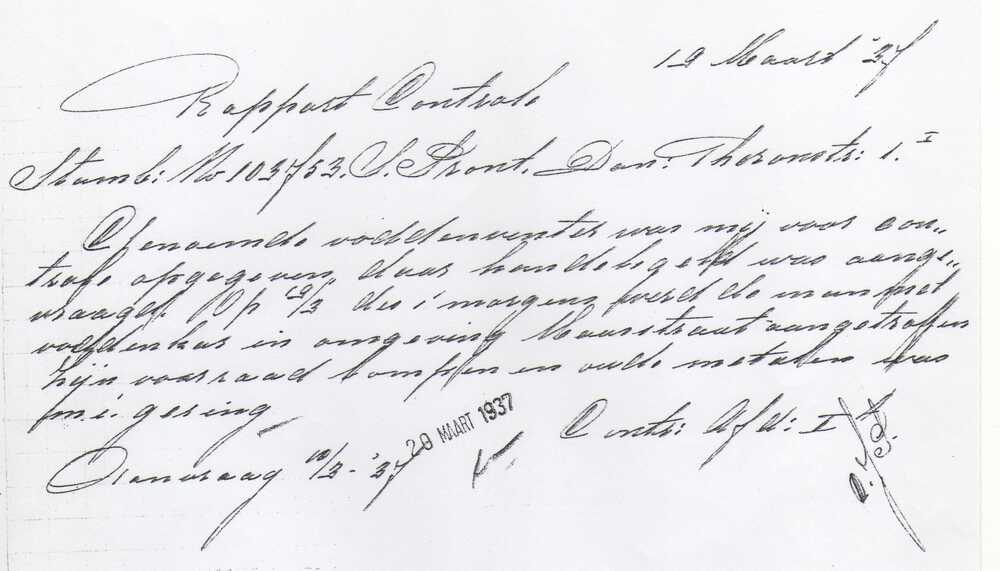 19 Maart '37
Rapport Controle
Stamb: No 103753. S. Front. Dan: Theronstr: 1. I
Genoemde voddenventer was mij voor con„
trole opgegeven, daar handelsgeld was aange„
vraagd. Op 19/3 des morgens werd de man met
voddenkar in omgeving Maasstraat aangetroffen
Zijn voorraad lompen en oude metalen was
m.i. gering
20 MAART 1937
Contr: Afd: I
Aanvraag 10/3 - '37